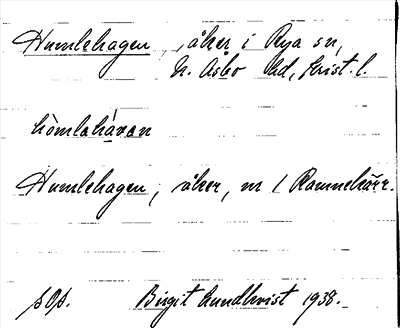 Humlehagen, åker i Rya sn,
N. Åsbo hd, Krist. l.
hòmlahávan
Humlehagen, åker, nr 1 Ramnekärr.
s. Os. Birgit Lundkvist 1938.